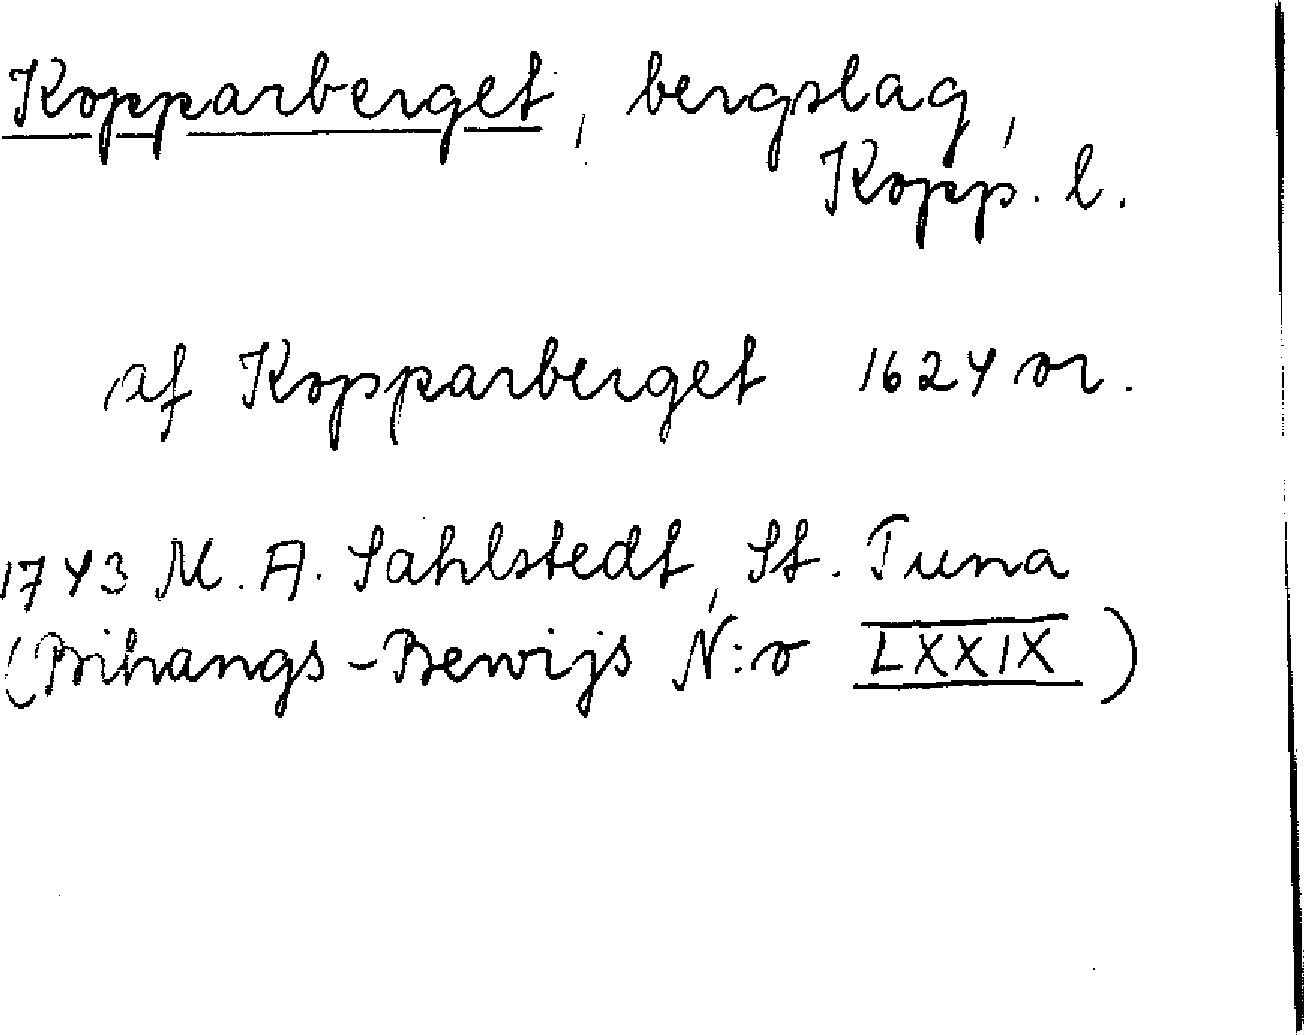 Kopparberget, bergslag,
Kopp. l.
af Kopparberget 1624 or.
1743 M. A. Sahlstedt, St. Tuna
(Bihangs-Bewijs N:o LXXIX)